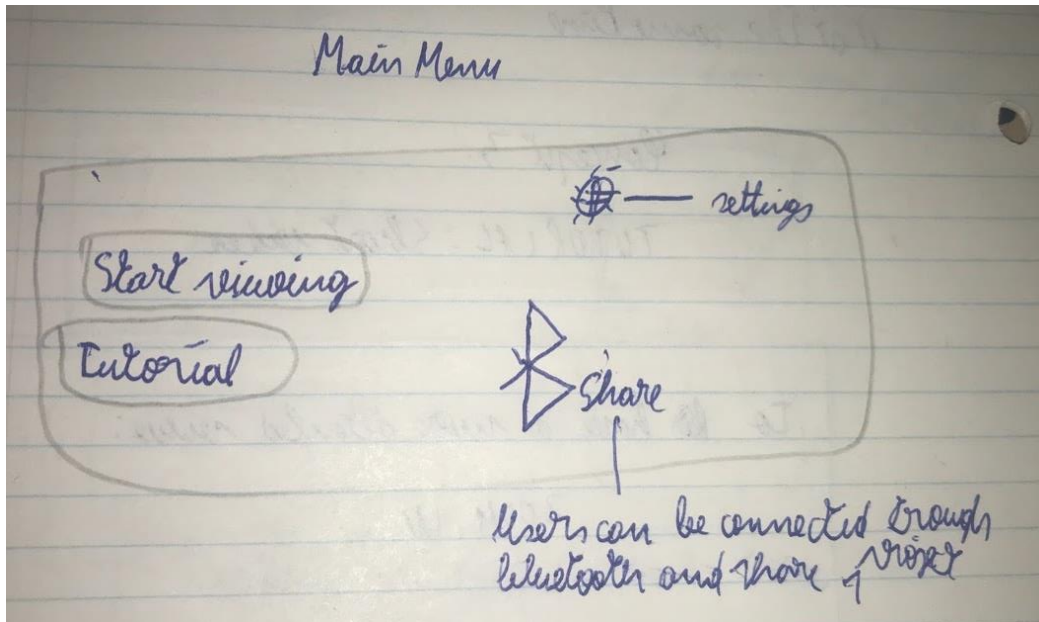 Main Menu
settings
Start viewing
Tutorial
Share
Users can be connected trough
bluetooth and share 1